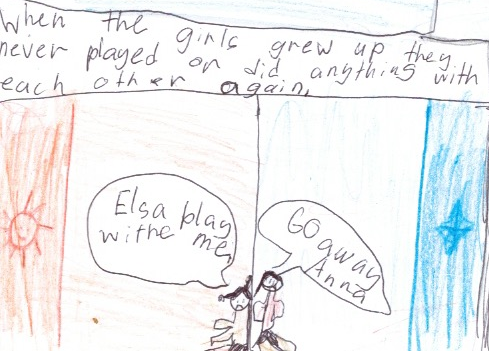 When the girls grew up they
never played or did anything with
each other again.
Elsa play
withe me,
GO
away
Anna